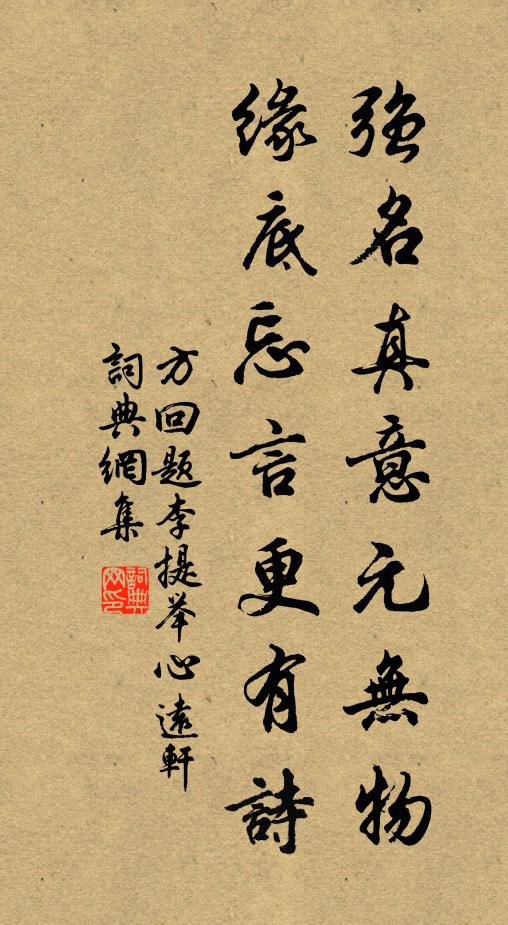 强名真意元無物
緣底忘言更有詩
方回题李提举心遠軒
詞典網集
詞典网印